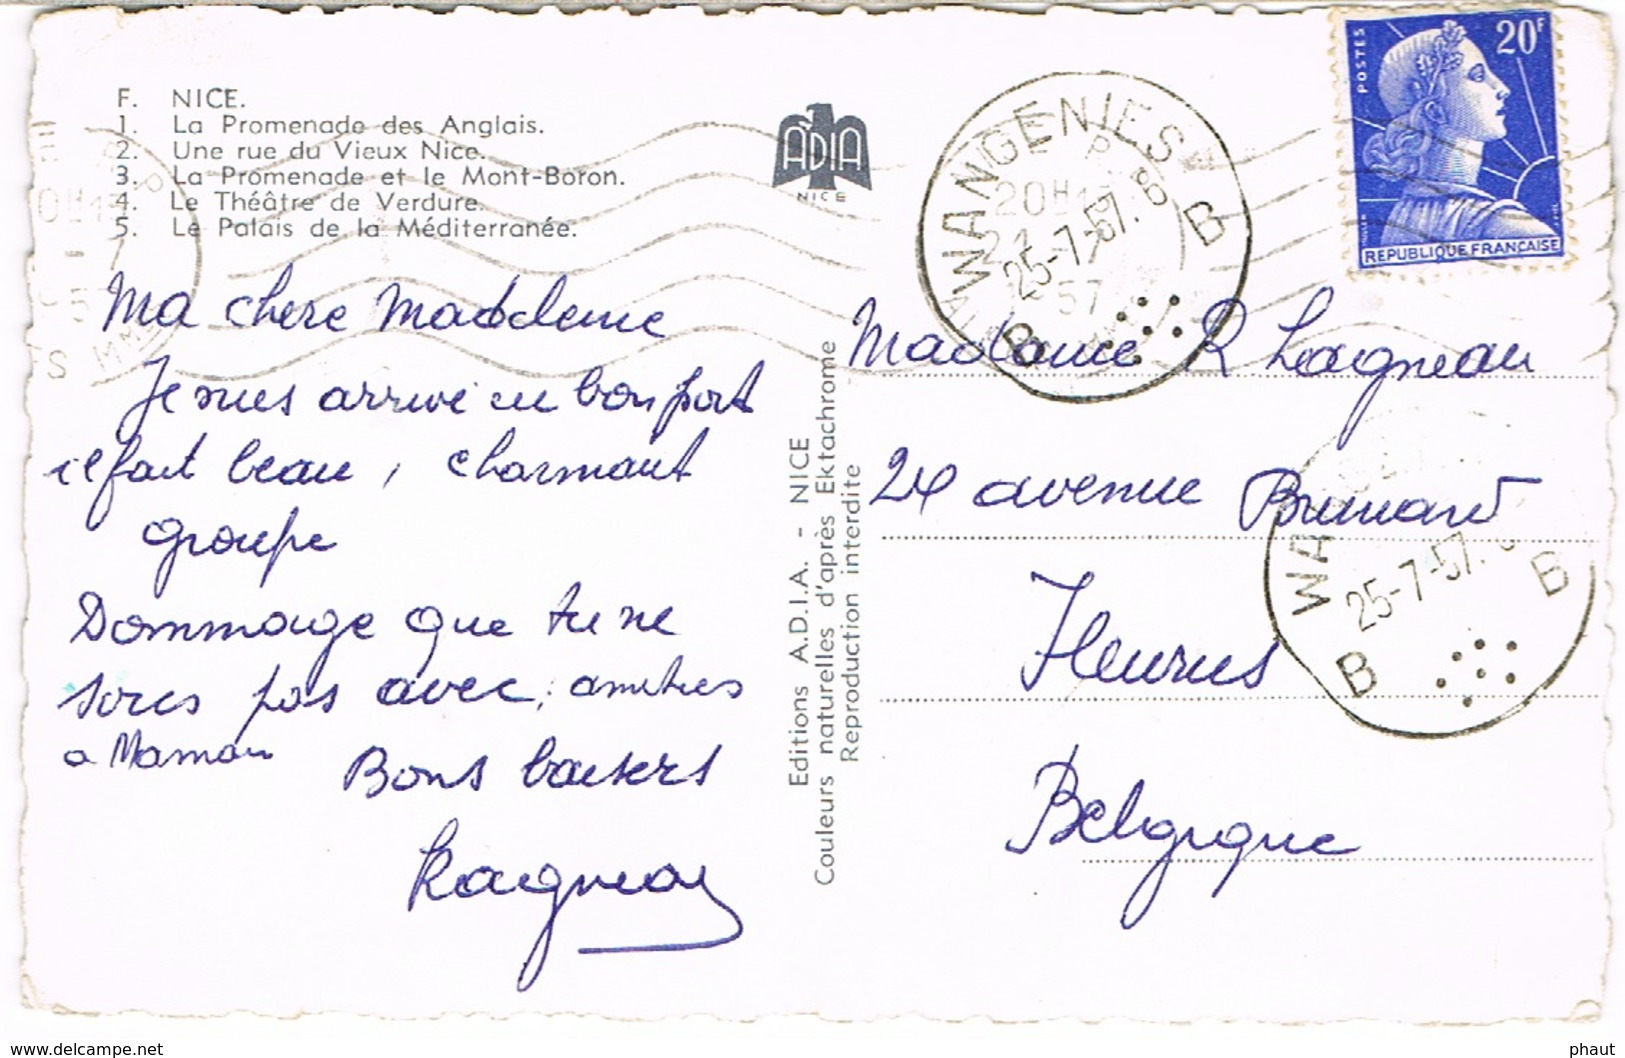 F. NICE.
1. La Promenade des Anglais.
2. Une rue du Vieux Nice.
3. La Promenade et le Mont-Boron.
4. Le Théâtre de Verdure.
5. Le Palais de la Méditerranée.
ADIA
NICE
Ma chere Madeleine
Je suis arrivé en bon port
il fait beau, charmant
groupe
Dommage que tu ne
sois pas avec, amities
a Maman
Bons baisers
Editions A.D.I.A. - NICE
Couleurs naturelles d'après Ektachrome
Reproduction interdite
POSTES
20F
REPUBLIQUE FRANÇAISE
WANGENIES
20H
25-7-57. 8
57
B B
Madame R Lagneau
24 avenue Brunard
Fleurus
Belgique
WA
25-7-57.
B B
delcampe.net
phaut